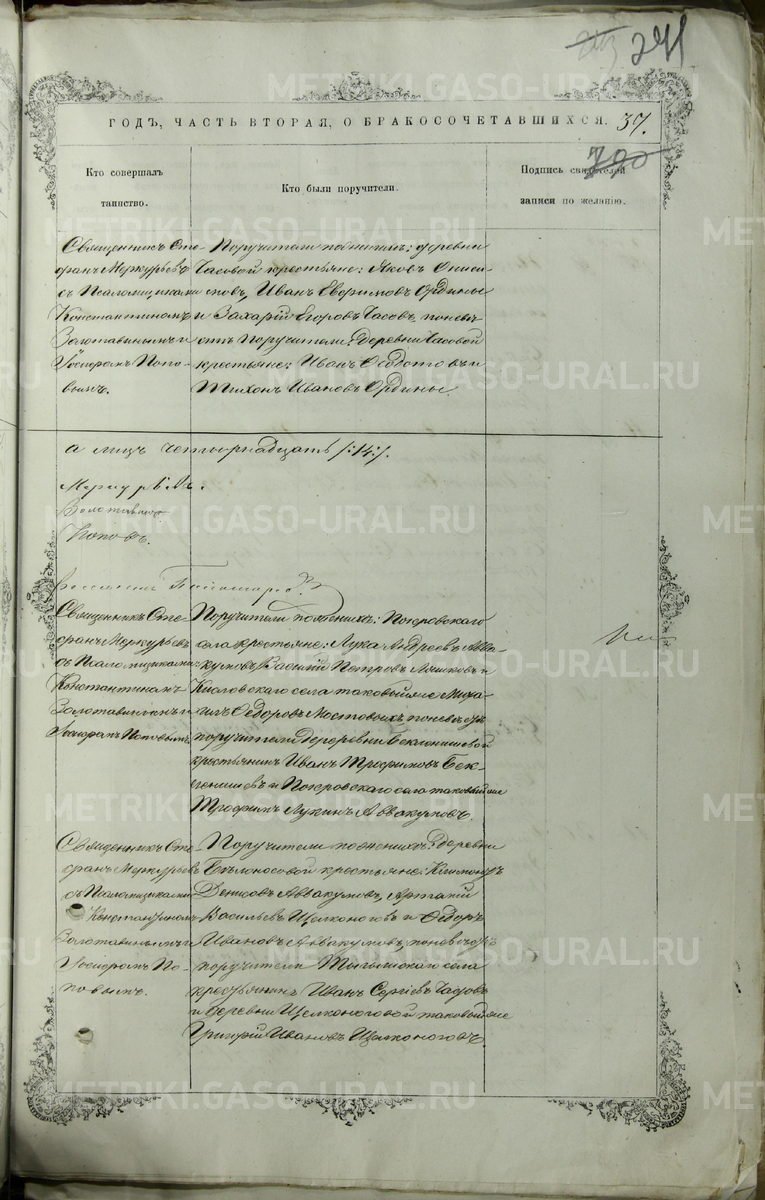 241
ГОДЪ, ЧАСТЬ ВТОРАЯ, О БРАКОСОЧЕТАВШИХСЯ. 37.
790
Кто совершалъ
таинство.
Кто были поручители.
Подпись свидѣтелей
записи по желанію.
Священникъ Сте-
фанъ Меркурьевъ
съ Псаломщиками
Константиномъ
Золотавинымъ и
Іосифомъ Попо-
вымъ.
Поручители по женихѣ: деревни
Часовой крестьяне: Яковъ
Иванъ Евфимовъ Ордины
и Захарій Егоровъ Часовъ, по невѣ-
стѣ Поручители: Деревни Часовой
крестьяне: Иванъ Ѳедотовъ и
Тихонъ Ивановъ Ордины.
а лицъ четырнадцать /:14:/.
Меркурьевъ.
Золотавинъ
Поповъ.
Священникъ Сте-
фанъ Меркурьевъ
съ Псаломщиками
Константиномъ
Золотавинымъ и
Іосифомъ Поповымъ
Поручители по женихѣ: Покровскаго
села крестьяне: Лука Андреевъ Авва-
кумовъ, Василій Петровъ и
Кисловскаго села таковый же Миха-
илъ Ѳедоровъ Мостовыхъ, по невѣстѣ
поручители Деревни Бекленищевой
крестьянинъ Иванъ Трофимовъ Бек-
ленищевъ и Покровскаго села таковый же
Трофимъ Лукинъ Аввакумовъ.
Священникъ Сте-
фанъ Меркурьевъ
съ Псаломщиками
Константиномъ
Золотавинымъ и
Іосифомъ По-
повымъ.
Поручители по женихѣ: Деревни
Бѣлоносовой крестьяне:
Денисовъ Аввакумовъ, Артамій
Васильевъ Щелконоговъ и Ѳедоръ
Ивановъ Аввакумовъ, по невѣстѣ
поручители Тыгишскаго села
крестьянинъ Иванъ Сергѣевъ Часовъ
и деревни Щелконоговой таковый же
Григорій Ивановъ Щелконоговъ
METRIKI.GASO-URAL.RU